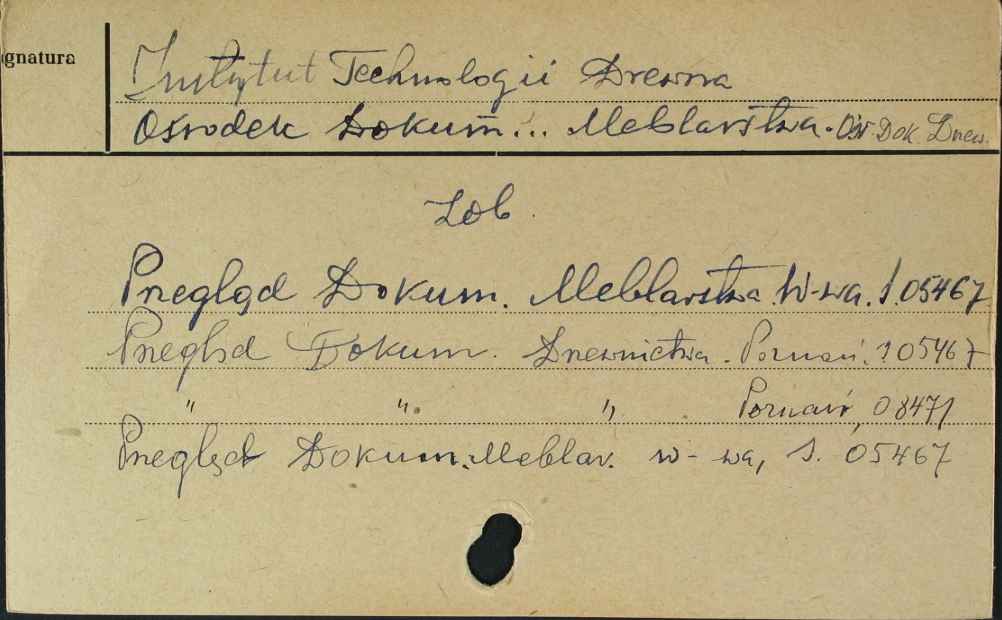 gnatura
Instytut Technologii Drewna
Ośrodek Dokum... Meblarstwa. Ośr. Dok. Drew.
Zob.
Przegląd Dokum. Meblarstwa. W-wa. S.05467
Przegląd Dokum. Drzewnictwa. Poznań. S 05467
" " " Poznań, 08471
Przegląd Dokum. Meblar. W-wa, S. 05467